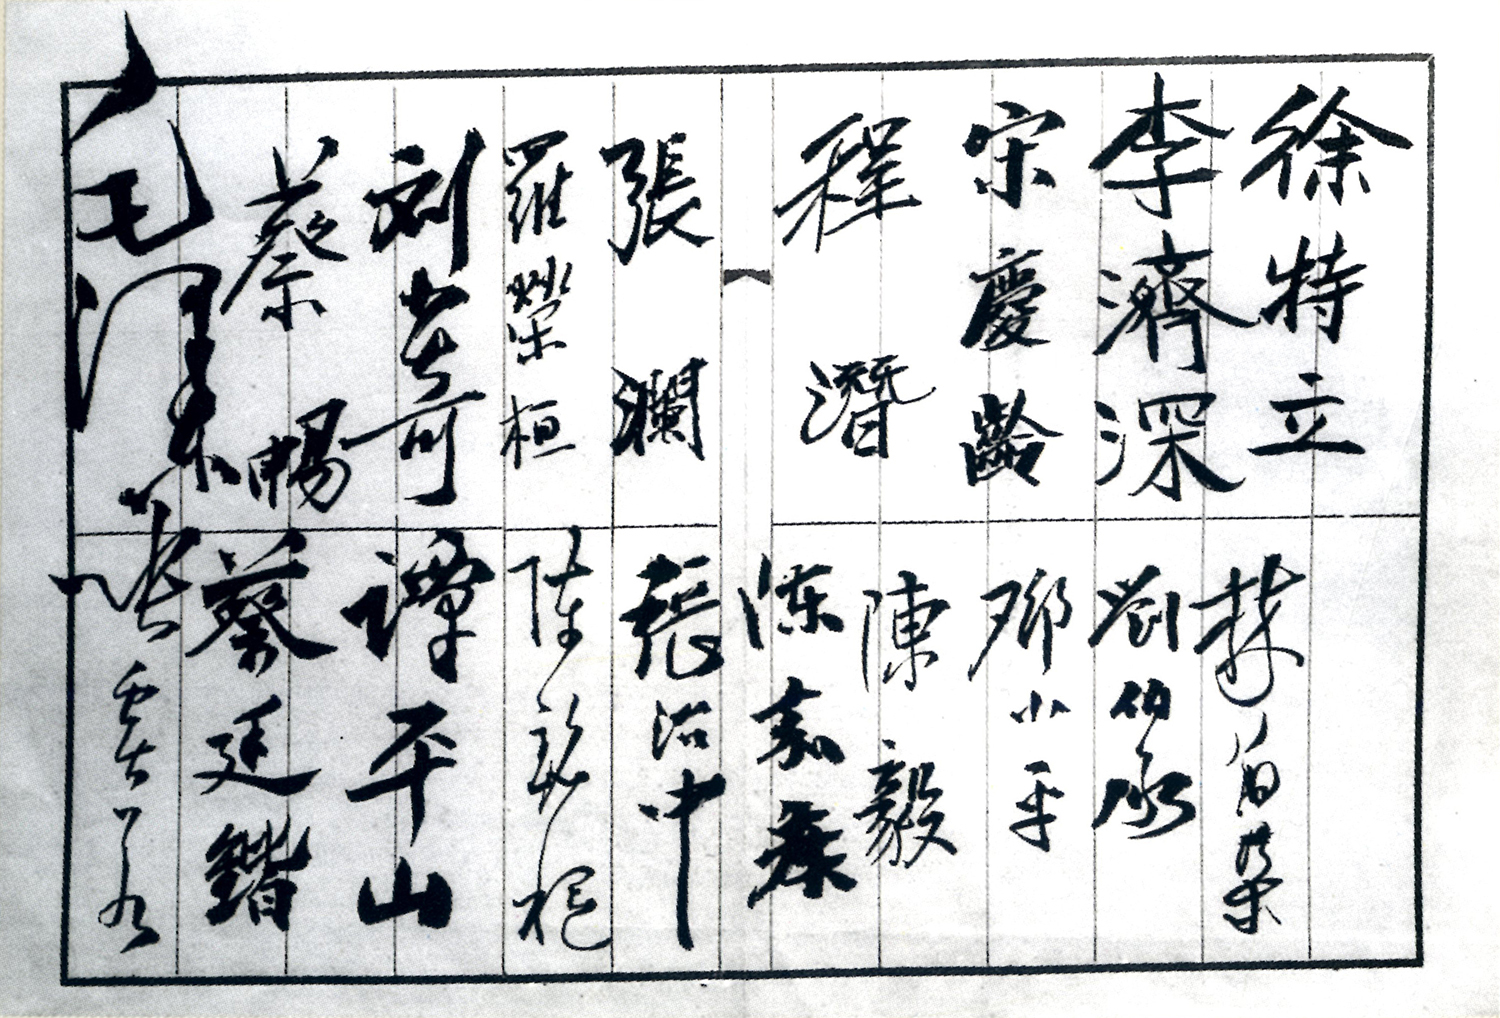 徐特立
李濟深
宋慶齡
程潛
張瀾
羅榮桓
刘少奇
蔡暢
毛澤東
林伯渠
劉伯承
鄧小平
陳毅
陳嘉庚
張治中
陈銘枢
譚平山
蔡廷鍇